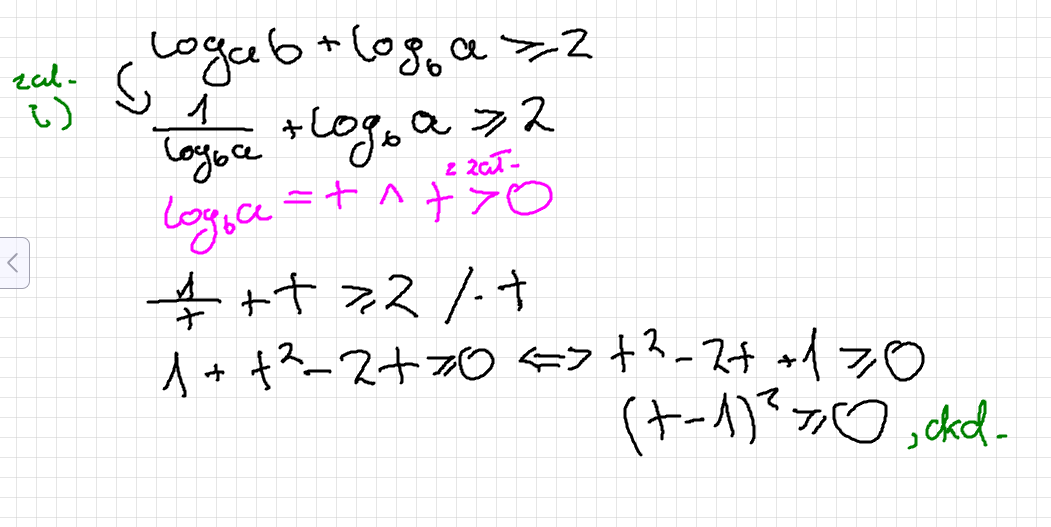 log_a b + log_b a ≥ 2
zał.
i)
1/log_b a + log_b a ≥ 2
z zał.
log_b a = t ∧ t > 0
1/t + t ≥ 2 /· t
1 + t² - 2t ≥ 0 ⟺ t² - 2t + 1 ≥ 0
(t - 1)² ≥ 0 , ckd.